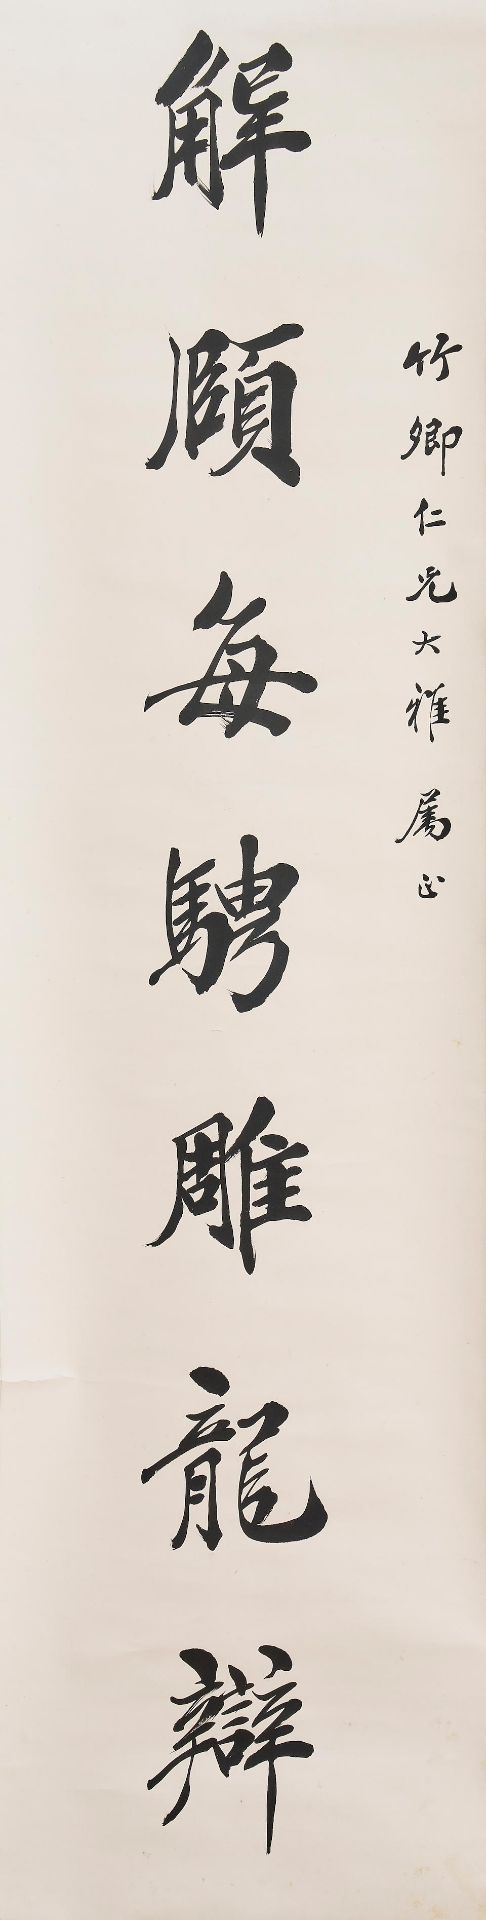 竹卿仁兄大雅属正
解頤每騁雕龍辯